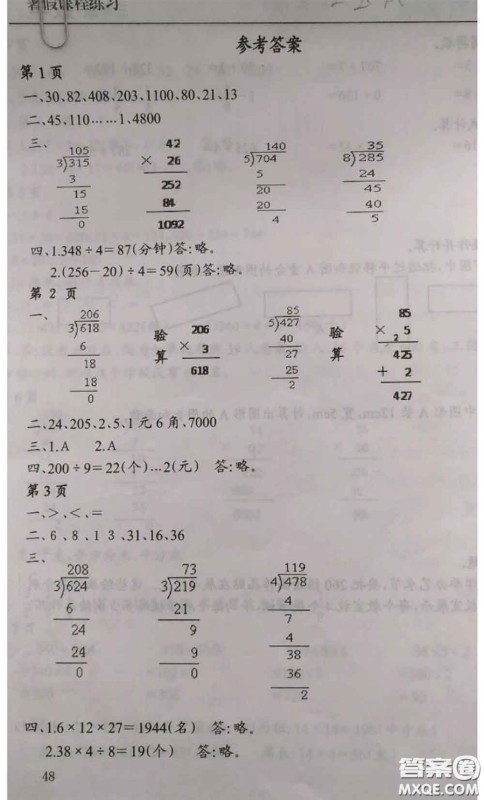 暑假课程练习
参考答案
第1页
一、30、82、408、203、1100、80、21、13
二、45、110……1、4800
三、
105
3)315
3
15
15
0
42
× 26
252
84
1092
140
5)704
5
20
20
4
35
8)285
24
45
40
5
四、1.348÷4=87(分钟)答:略。
2.(256-20)÷4=59(页)答:略。
第2页
一、
206
3)618
6
18
18
0
验算
206
× 3
618
85
5)427
40
27
25
2
验算
85
× 5
425
+ 2
427
二、24、205、2、5、1元6角、7000
三、1.A 2.A
四、200÷9=22(个)…2(元) 答:略。
第3页
一、>、<、=
二、6、8、13、31、16、36
三、
208
3)624
6
24
24
0
73
3)219
21
9
9
0
119
4)478
4
7
4
38
36
2
四、1.6×12×27=1944(名) 答:略。
2.38×4÷8=19(个) 答:略。
48
答案圈
MXQE.COM